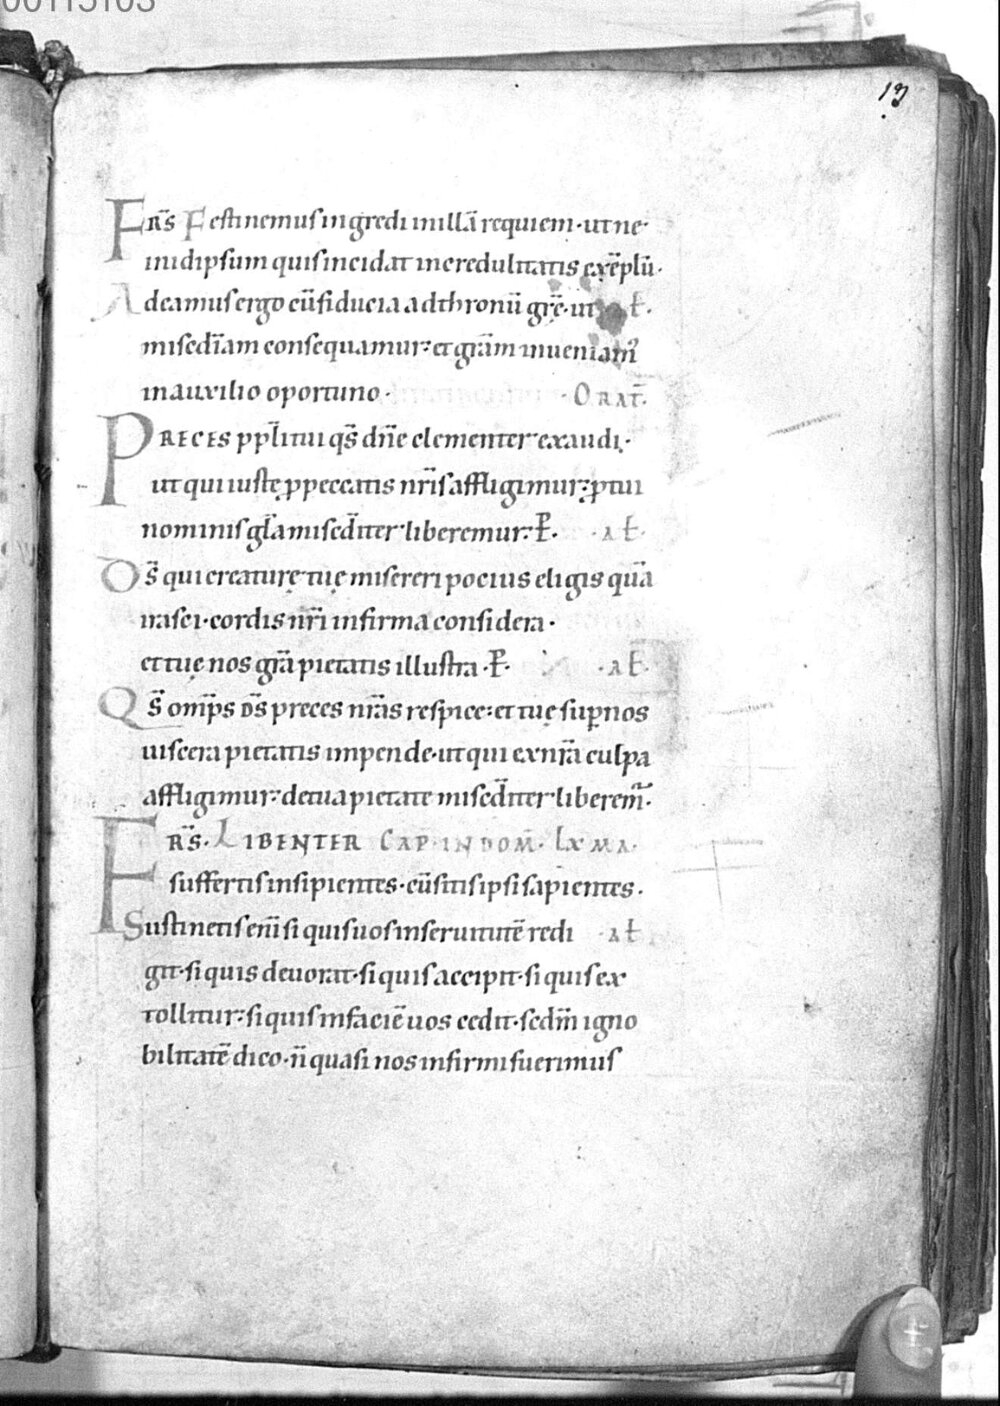 00115103
13
FRS̄ Festinemus ingredi in illā requiem · ut ne
in idipsum quis incidat incredulitatis exēplū ·
Adeamus ergo cū fiducia ad thronū grę̄ · ut al̄ ·
misediam consequamur et grām inueniam᷑
in auxilio oportuno · ORAT̄ ·
PRECES ppl̄i tui qs̄ dn̄e clementer exaudi ·
ut qui iuste p peccatis nr̄is affligimur p tui
nominis gl̄a misedit̄er liberemur · P̄ · al̄ ·
Ds̄ qui creaturę tuę misereri pocius eligis quā
irasci · cordis nr̄i infirma considera ·
et tuę nos grā pietatis illustra · P̄ · al̄ ·
Qs̄ omp̄s ds̄ preces nr̄as respice et tuę sup nos
uiscera pietatis impende · ut qui ex nr̄a culpa
affligimur de tua pietate misedit̄er liberem᷑ ·
FRS̄ · LIBENTER CAP̄ · IN DOM̄ · LXMA ·
suffertis insipientes · cū sitis ipsi sapientes ·
Sustinetis eni͞ si quis uos in seruitutē redi al̄
git · si quis deuorat · si quis accipit · si quis ex
tollitur · si quis in faciē uos cedit · sedm̄ igno
bilitatē dico · n̄ quasi nos infirmi fuerimus